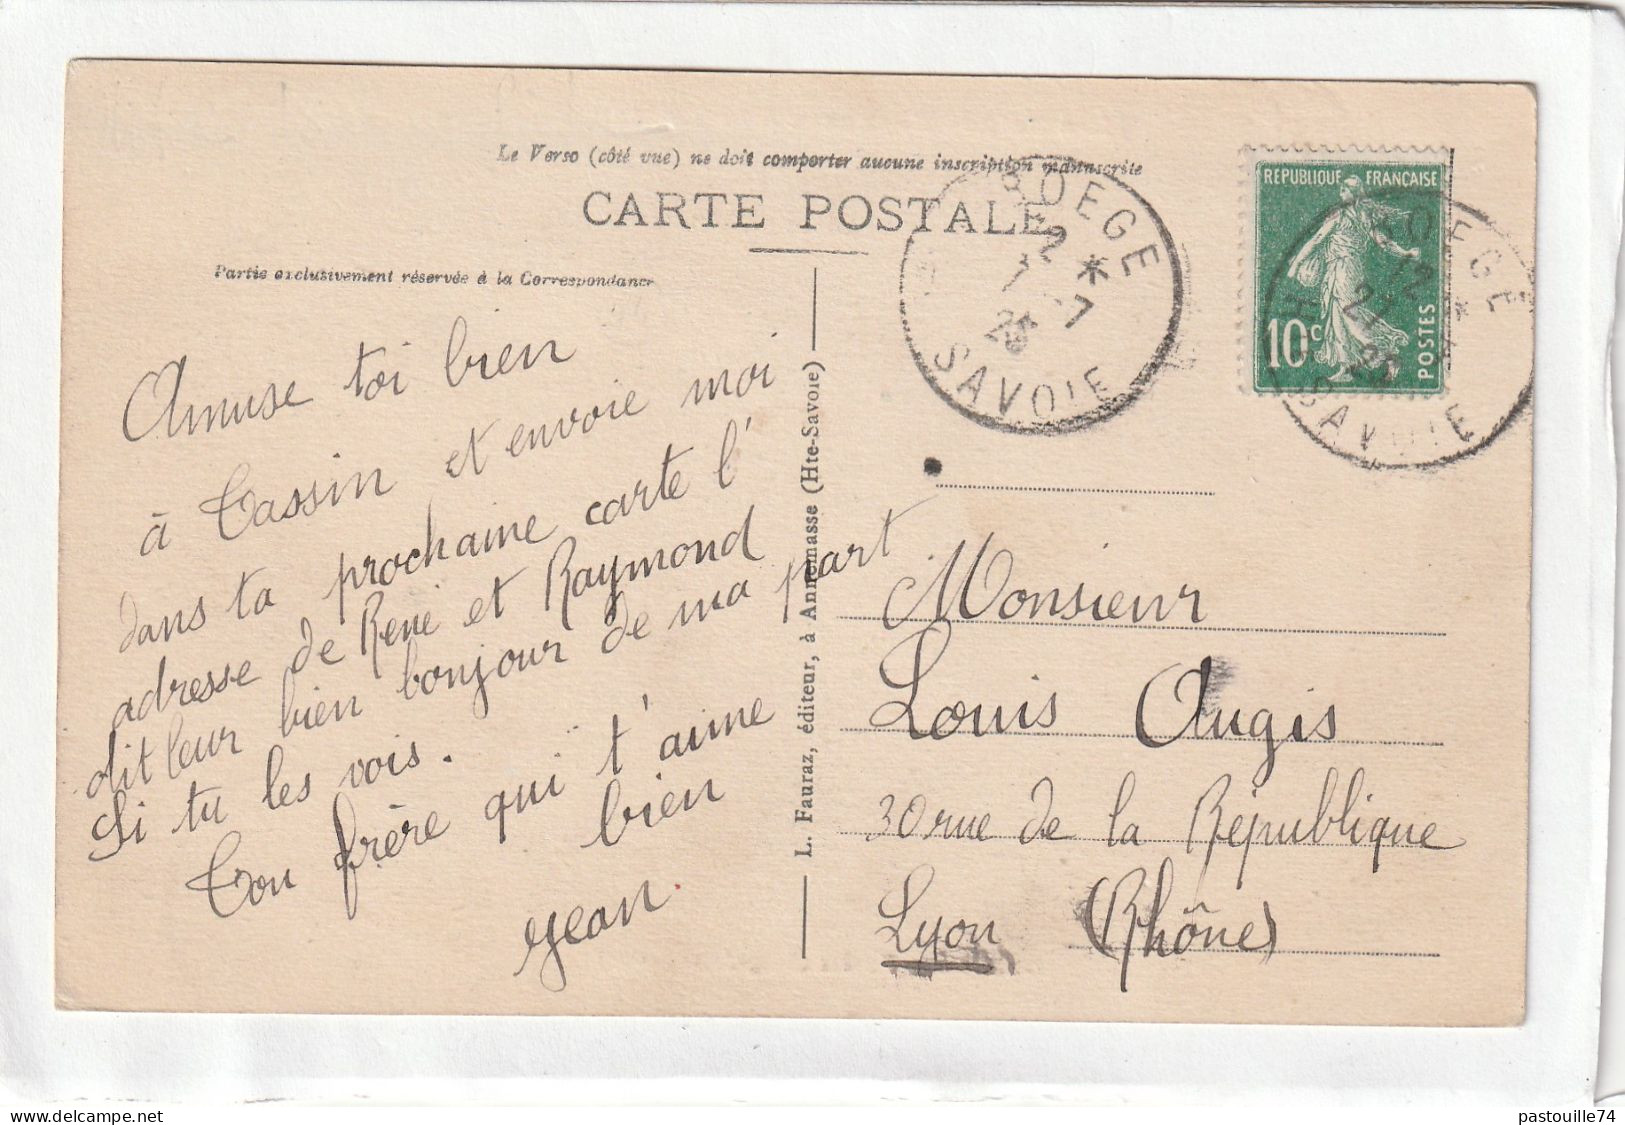 Le Verso (côté vue) ne doit comporter aucune inscription manuscrite
CARTE POSTALE
Partie exclusivement réservée à la Correspondance
Amuse toi bien
à Tassin et envoie moi
dans ta prochaine carte l'
adresse de René et Raymond
dit leur bien bonjour de ma part
Si tu les vois.
Ton frère qui t'aime
bien
Jean.
L. Fauraz, éditeur, à Annemasse (Hte-Savoie)
BOEGE
12 *
7
SAVOIE
RÉPUBLIQUE FRANÇAISE
10c
POSTES
BOEGE
12 *
SAVOIE
Monsieur
Louis Augis
30 rue de la République
Lyon (Rhône)
pastouille74